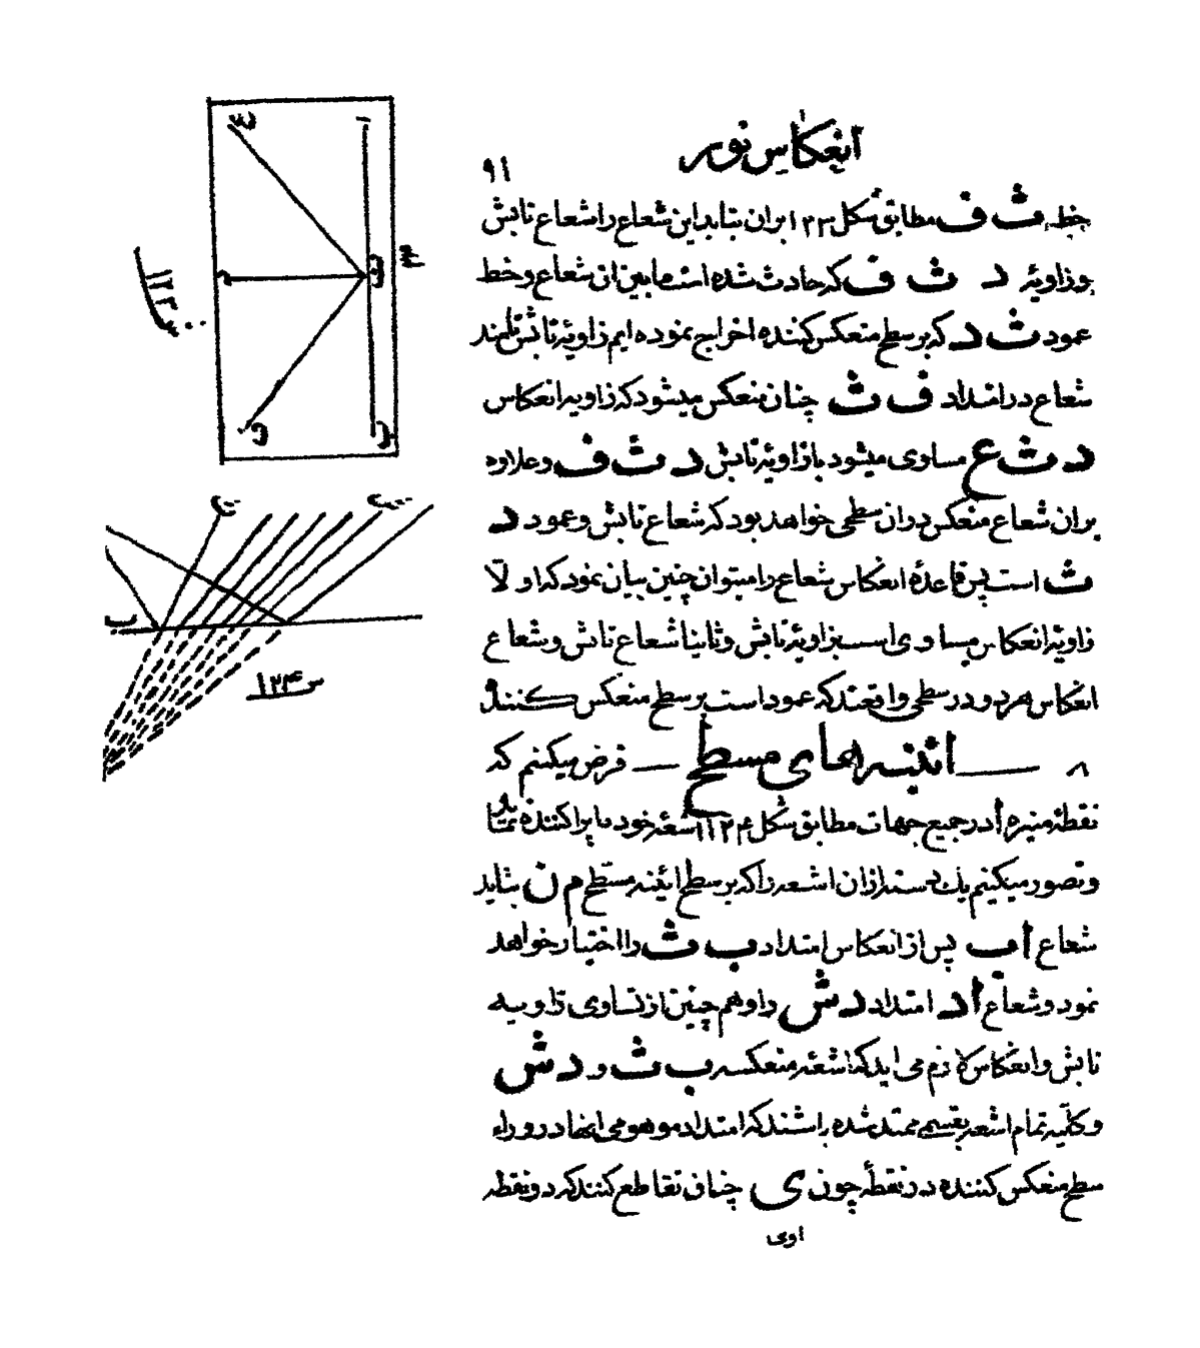 انعکاس نور
۹۱
خط ث ف مطابق شکل ۱۲۳ بران بتابد این شعاع را شعاع تابش
و زاویهٔ د ث ف که حادث شده است مابین ان شعاع و خط
عمود ث د که بر سطح منعکس کننده اخراج نموده ایم زاویهٔ تابش نامند
شعاع در امتداد ف ث چنان منعکس میشود که زاویه انعکاس
د ث ع مساوی میشود با زاویهٔ تابش د ث ف و علاوه
بران شعاع منعکس دران سطحی خواهد بود که شعاع تابش و عمود د
ث است پس قاعدهٔ انعکاس شعاع را میتوان چنین بیان نمود که اولا
زاویهٔ انعکاس مساوی است بزاویهٔ تابش و ثانیا شعاع تابش و شعاع
انعکاس هر دو در سطحی واقعند که عمود است بر سطح منعکس کننده
۸ ــــ ائینه‌های مسطح ــــ فرض میکنیم که
نقطهٔ منیره أ در جمیع جهات مطابق شکل ۱۲۴ اشعهٔ خود را پراکننده نماید
و تصور میکنیم یك دسته از ان اشعه را که بر سطح ائینه مسطح م ن بتابد
شعاع أ ب پس از انعکاس امتداد ب ث را اختیار خواهد
نمود و شعاع أ د امتداد د ش را و هم چنین از تساوی زاویه
تابش و انعکاس لازم می اید که اشعهٔ منعکسه ب ث و د ش
و کلّیه تمام اشعه بقسمی ممتد شده باشند که امتداد موهومی انها در وراء
سطح منعکس کننده در نقطهٔ چون ی چنان تقاطع کنند که دو نقطه
أ و ی
ع
ا
ث
د
ف
ب
ش ۱۲۳
ث
ش
ب
س ۱۲۴